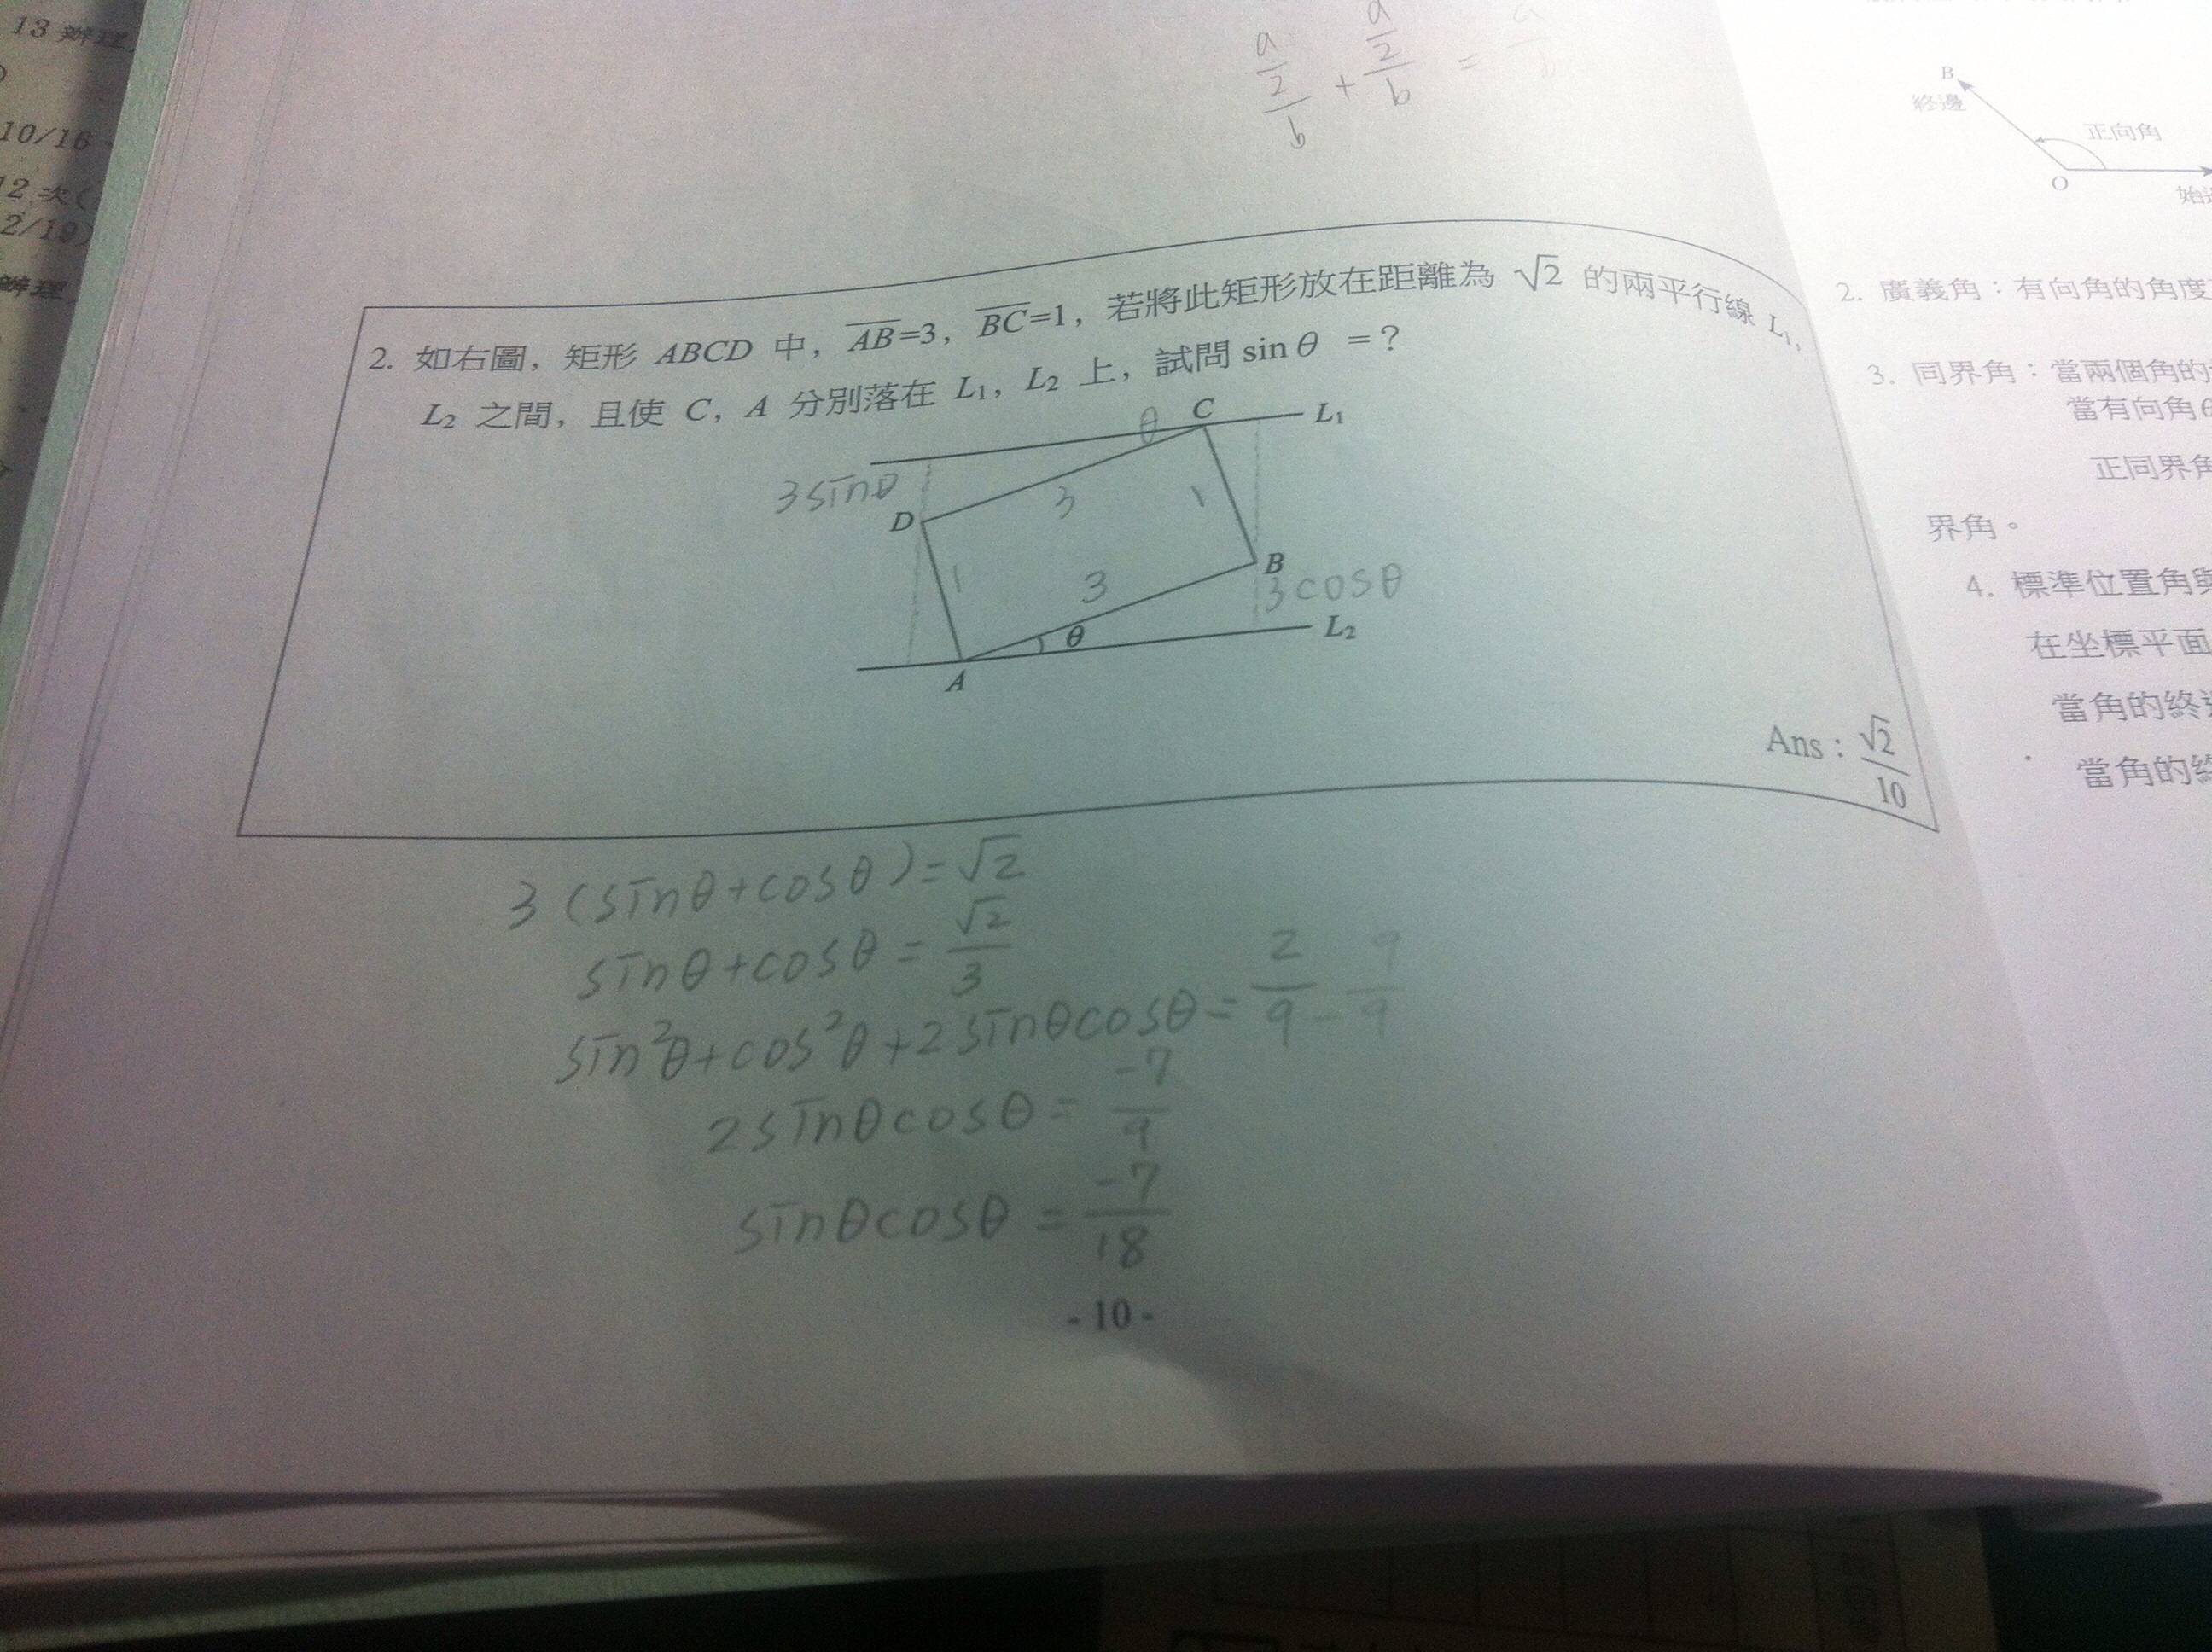 13 辦理
10/16、
12 次(
2/19)
辦理
a/2/b + a/2/b =
2. 如右圖，矩形 ABCD 中，AB=3，BC=1，若將此矩形放在距離為 √2 的兩平行線 L₁,
L₂ 之間，且使 C，A 分別落在 L₁，L₂ 上，試問 sin θ =？
θ C L₁
3sinθ
D 3 1
1 3 B
3cosθ
θ L₂
A
Ans：√2/10
3(sinθ+cosθ)=√2
sinθ+cosθ = √2/3
sin²θ+cos²θ+2sinθcosθ = 2/9 - 9/9
2sinθcosθ = -7/9
sinθcosθ = -7/18
- 10 -
B
終邊
正向角
O
2. 廣義角：有向角的角度
3. 同界角：當兩個角的
當有向角θ
正同界角
界角。
4. 標準位置角與
在坐標平面
當角的終邊
當角的終